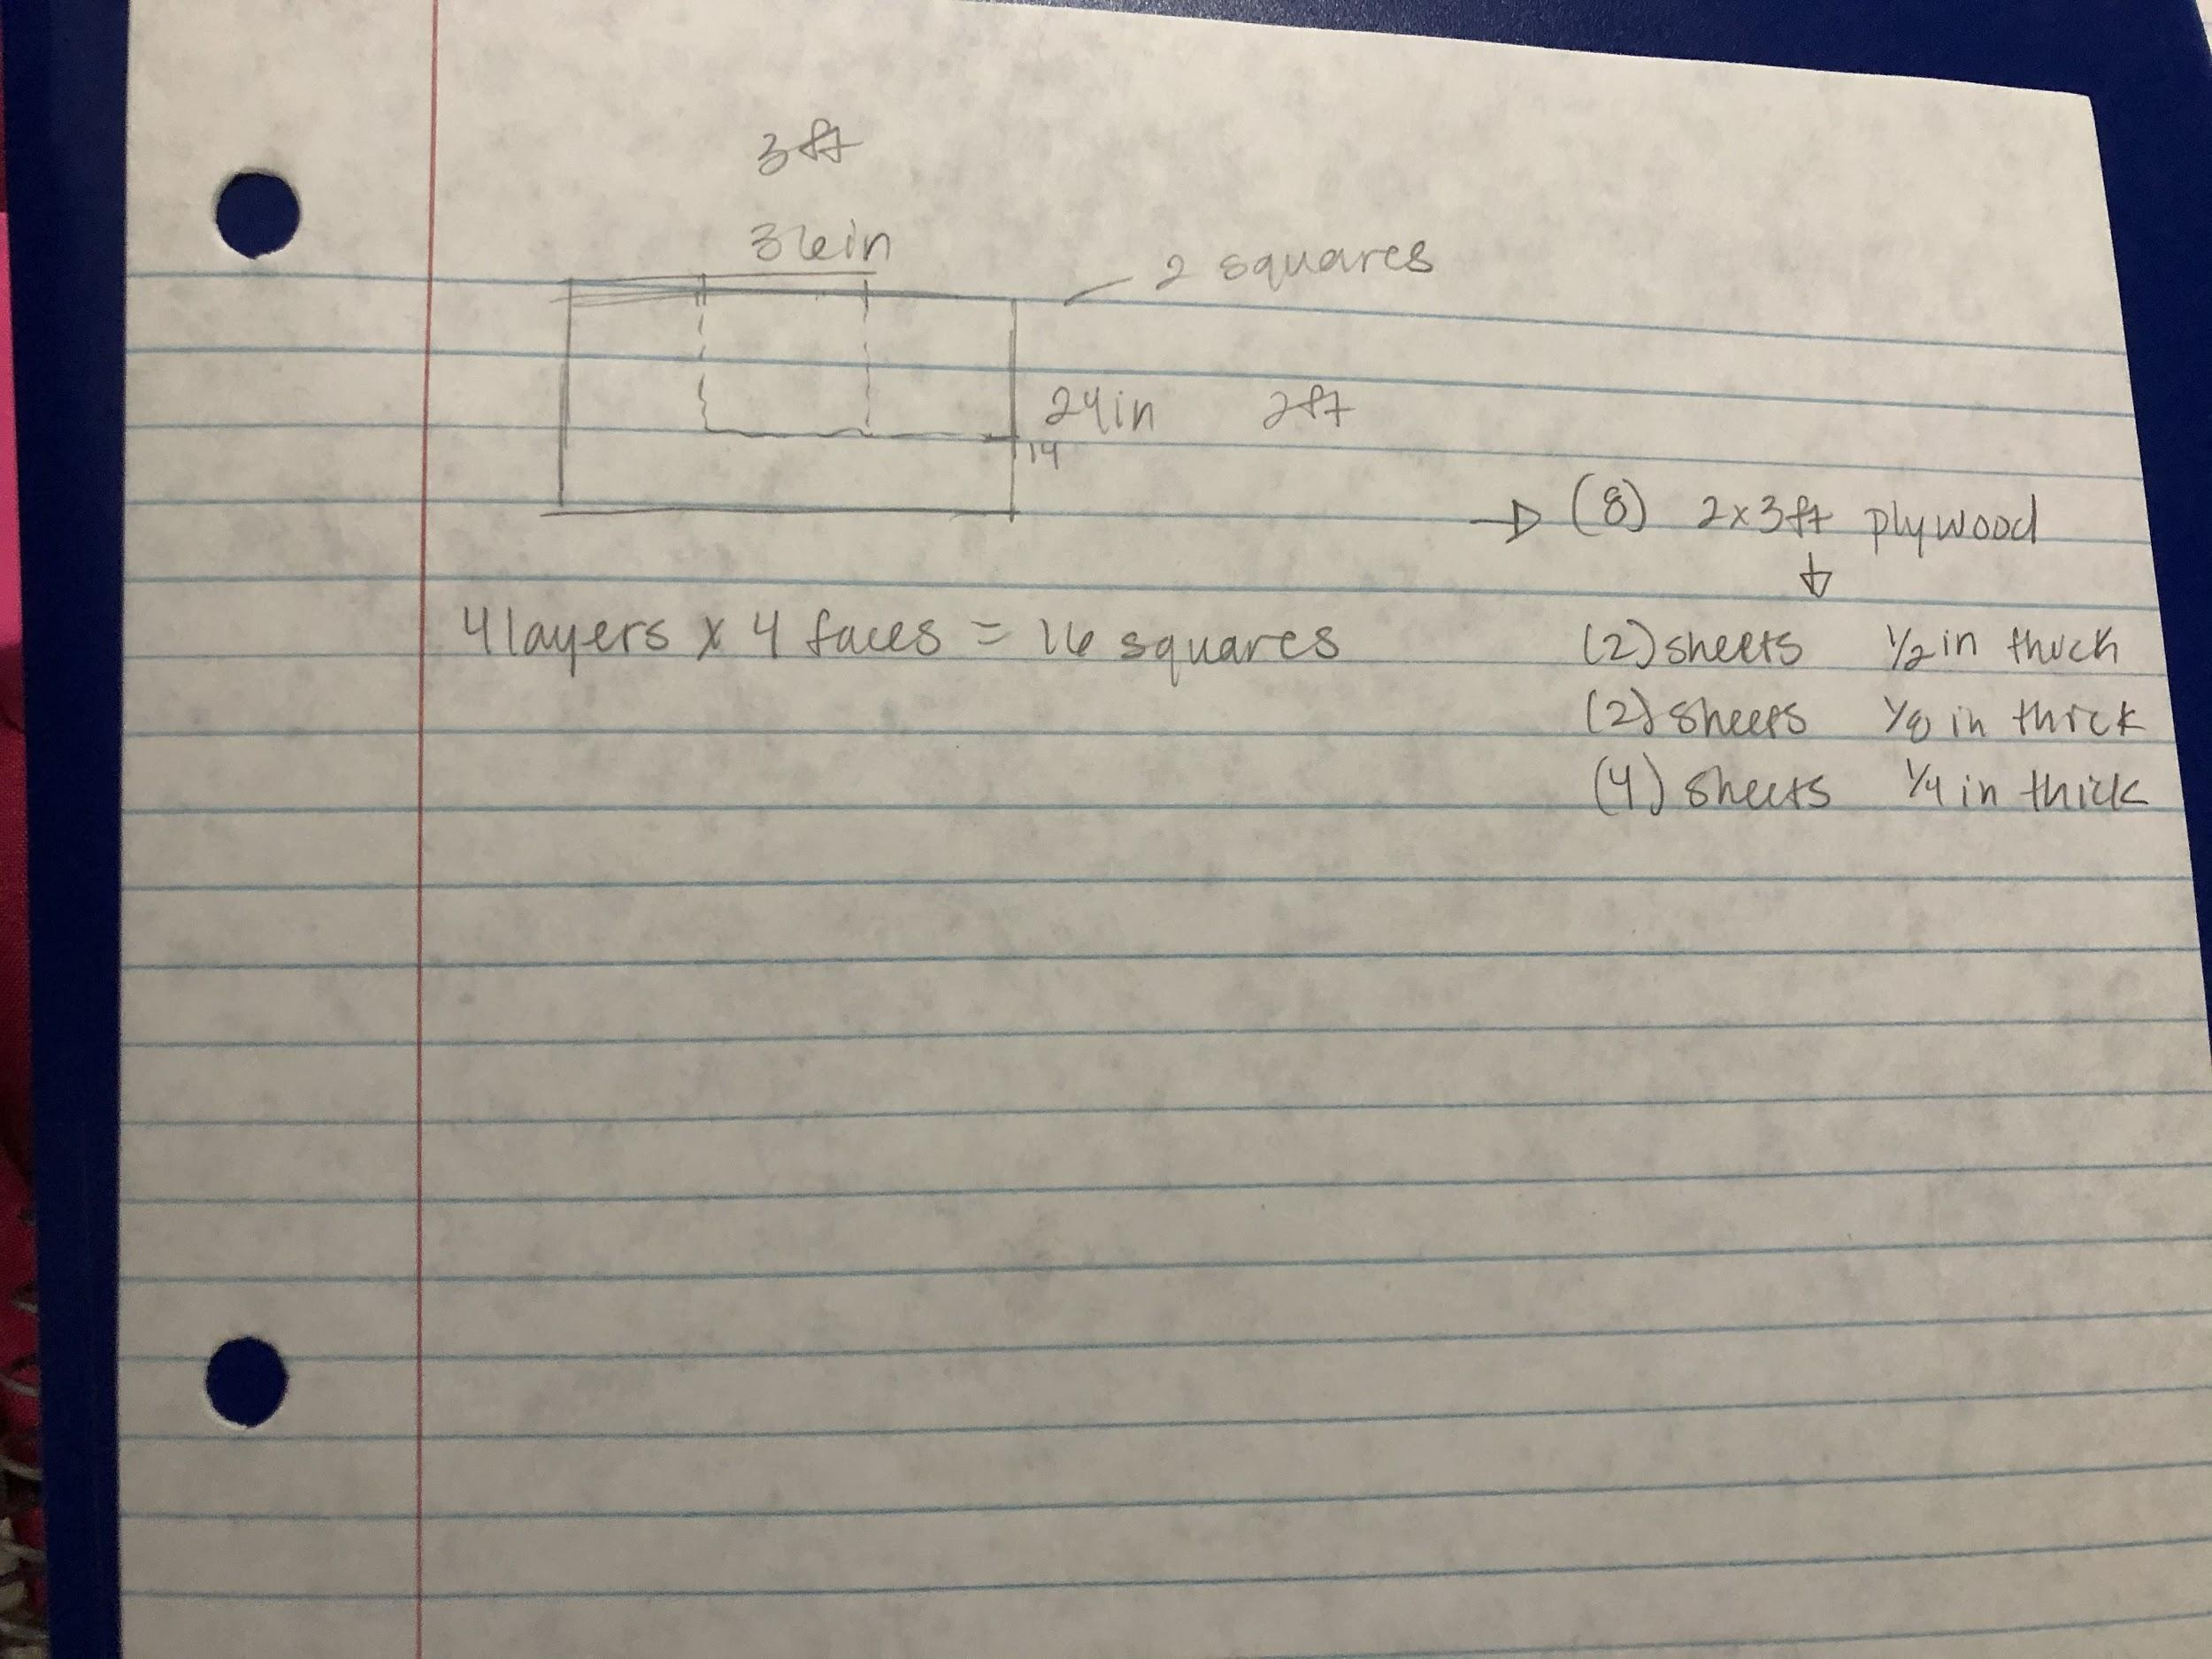 3ft
36in
2 squares
24in 2ft
14
→ (8) 2x3ft plywood
↓
4 layers x 4 faces = 16 squares
(2) sheets 1/2 in thick
(2) sheets 1/8 in thick
(4) sheets 1/4 in thick